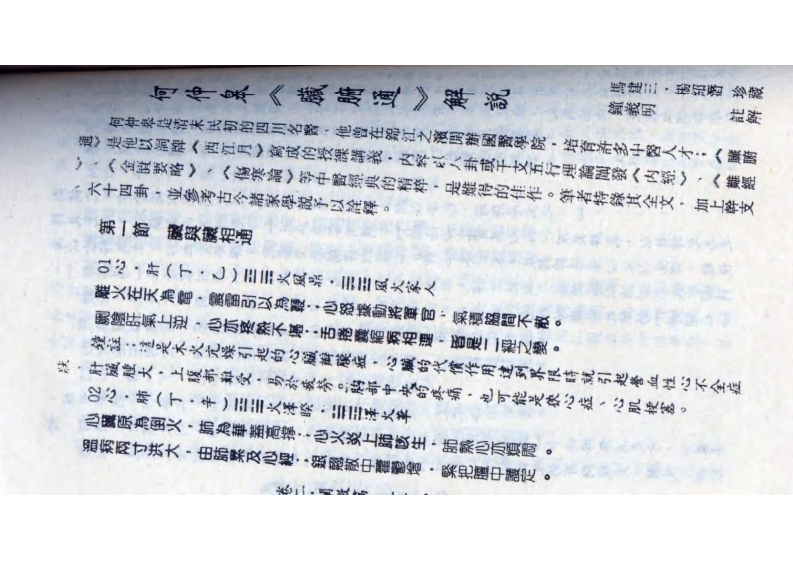 何仲皋《臟腑通》解說
馬建三、楊紹濳 珍藏
鐘義明 註解
何仲皋是清末民初的四川名醫，他曾在錦江之濱開辦國醫學院，培育許多中醫人才，《臟腑
通》是他以詞牌《西江月》寫成的授課講義，內容以八卦或干支五行理論闡發《內經》、《難經
》、《金匱要略》、《傷寒論》等中醫經典的精粹，是難得的佳作。筆者特錄其全文，加上幹支
、六十四卦，並參考古今諸家學說予以詮釋。
第一節 臟與臟相通
01心，肝（丁，乙）火風鼎，風火家人
離火在天為電，震雷引以為鞭，心怒撥動將軍官，氣積脇間不散。
厥陰肝氣上逆，心亦疼熱不堪，舌捲囊縮病相連，皆是二經之變。
鐘註：這是木火亢燥引起的心臟瓣膜症，心臟的代償作用達到界限時就引起鬱血性心不全症
，肝臟腫大，上腹部難受，易於疲勞。胸部中央的疼痛，也可能是狹心症、心肌梗塞。
02心，肺（丁，辛）火澤睽，澤火革
心臟原為倒火，肺為華蓋高撐，心火炎上肺俱生，肺熱心亦煩悶。
溫病兩寸洪大，由肺累及心經，銀翹散中 鬱 ，緊把膻中護定。